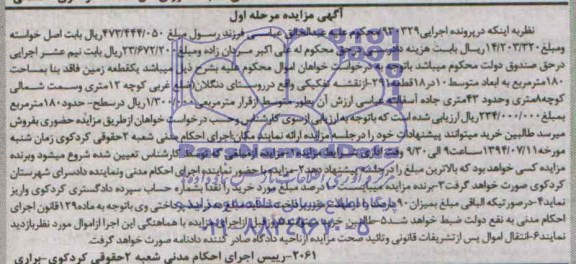 آگهی مزایده مرحله اول
نظریه اینکه درپرونده اجرایی محکوم علیه عبدالخالق فرزند رسول مبلغ ۴۷۳/۴۴۴/۰۵۰ریال بابت اصل خواسته
ومبلغ ۱۴/۲۰۳/۳۲۰ریال بابت هزینه دادرسی درحق محکوم له علی اکبر سردان زاده ومبلغ ۲۳/۶۷۲/۲۰۰ریال بابت نیم عشر اجرایی
درحق صندوق دولت محکوم میباشد باتوجه به درخواست خواهان اموال محکوم علیه بشرح ذیل میباشد یکقطعه زمین فاقد بنا بمساحت
۱۸۰مترمربع به ابعاد متوسط ۱۰در۱۸قطعه ۲۹ازنقشه تفکیکی واقع درروستای دنگلان ضلع غربی کوچه ۱۲متری وسمت شمالی
کوچه۸متری وحدود ۴۳متری جاده آسفالته ارزش آن بطورمتوسط ازقرار مترمربعی ۱/۳۰۰/۰۰۰ریال درسطح حدود ۱۸۰مترمربع
بمبلغ ۲۳۴/۰۰۰/۰۰۰ریال ارزیابی شده است که باتوجه به ارزیابی ازسوی کارشناس وحسب درخواست خواهان ازطریق مزایده حضوری بفروش
میرسد طالبین خرید میتوانند پیشنهادی خود را درجلسه مزایده ارائه نمایند مکان:اجرای احکام مدنی شعبه ۲حقوقی کردکوی زمان شنبه
مورخه ۱۳۹۴/۰۷/۱۱ساعت ۹الی ۹/۳۰ وقت اداری شرایط مزایده:۱-مزایده ازمبلغی که توسط کارشناس تعیین شده شروع میشود وبرنده
مزایده کسی خواهدبود که بالاترین مبلغ را درجلسه پیشنهاد دهد۲-مزایده باحضور نماینده اجرای احکام مدنی ونماینده دادسرای شهرستان
کردکوی صورت خواهد گرفت۳-برنده مزایده میبایست ده درصد مبلغ مورد خرید را نقدا بشماره حساب سپرده دادگستری کردکوی واریز
نماید۴-درصورتیکه الباقی مبلغ بمیزان ۹۰ پرداختی وی باتوجه به ماده۱۲۹قانون اجرای
احکام مدنی به نفع دولت ضبط خواهد شد۵-طالبین خرید مزایده با هماهنگی این اجرا ازاموال مورد نظربازدید
نمایند۶-انتقال اموال پس ازتشریفات قانونی وتائید صحت مزایده ازناحیه دادگاه صادر کننده دادنامه صورت خواهد گرفت
۲۰۶۱-رییس اجرای احکام مدنی شعبه ۲حقوقی کردکوی-براری
ParsNamadData
۰۲۱-۸۸۳۴۹۶۷۰-۵